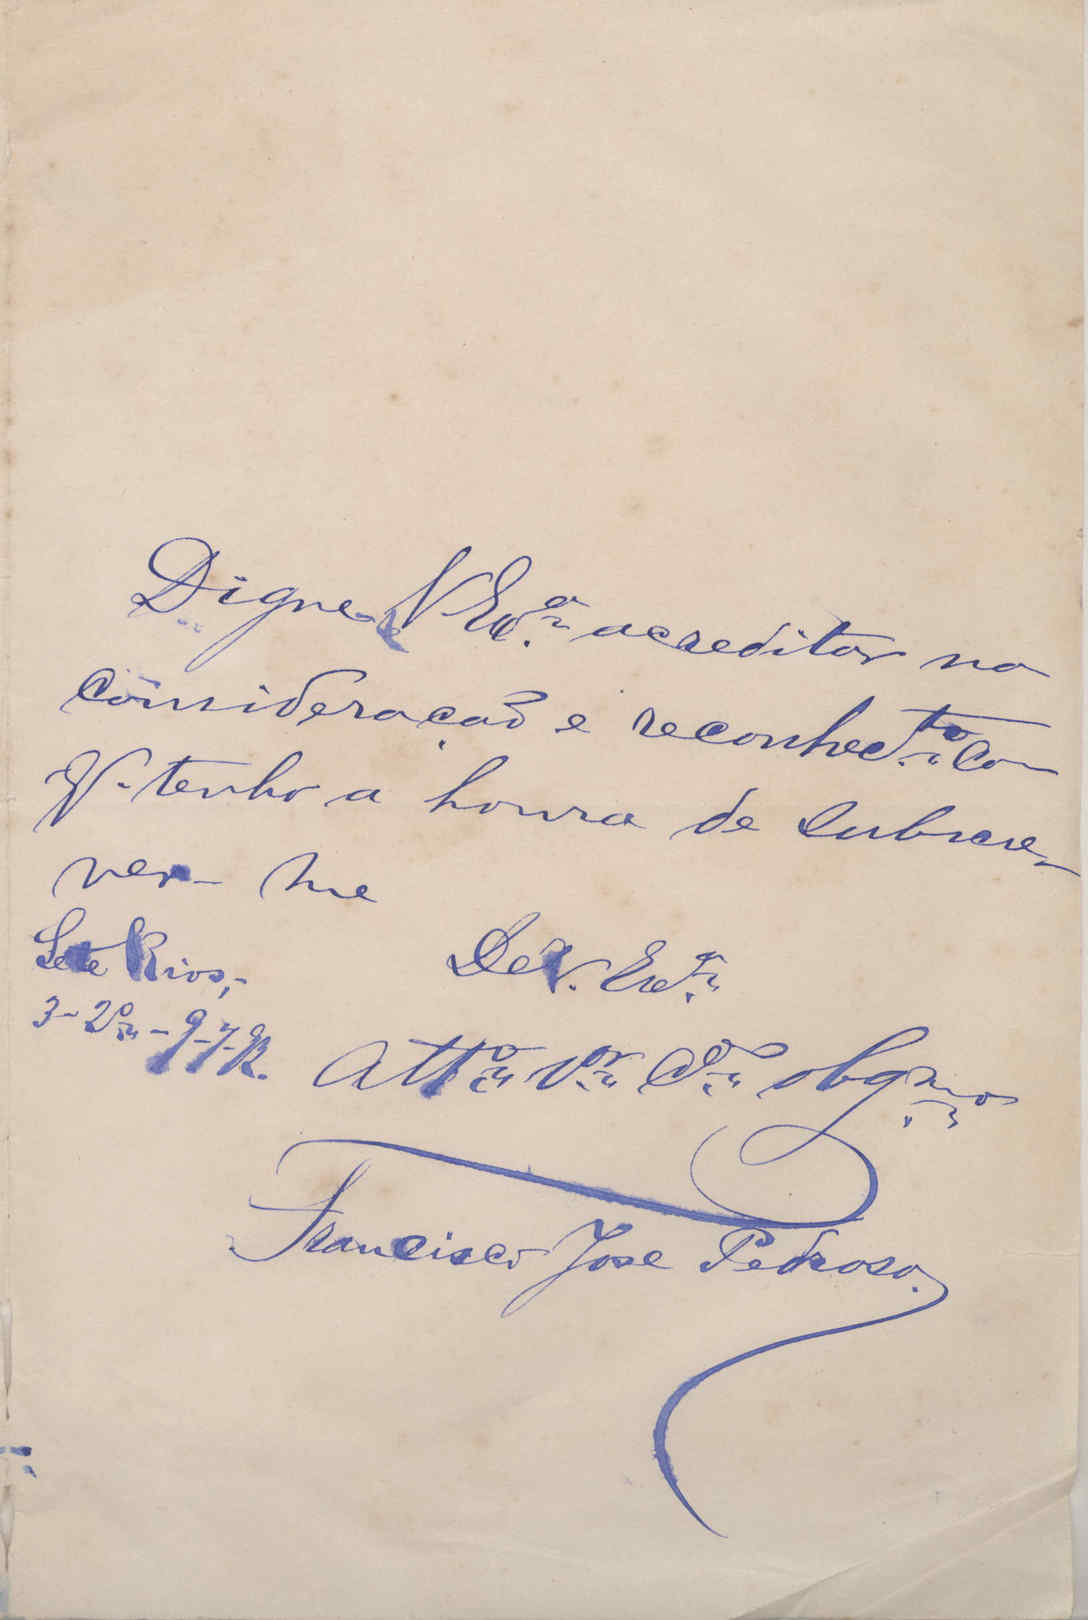 Digne V. Exª acreditar na
consideração e reconhec.to co
q. tenho a honra de subscre-
ver-me
De V. Exª
Sete Rios,
3-2º-
Attº Vor Cdº obgmo
Francisco José Pedroso.